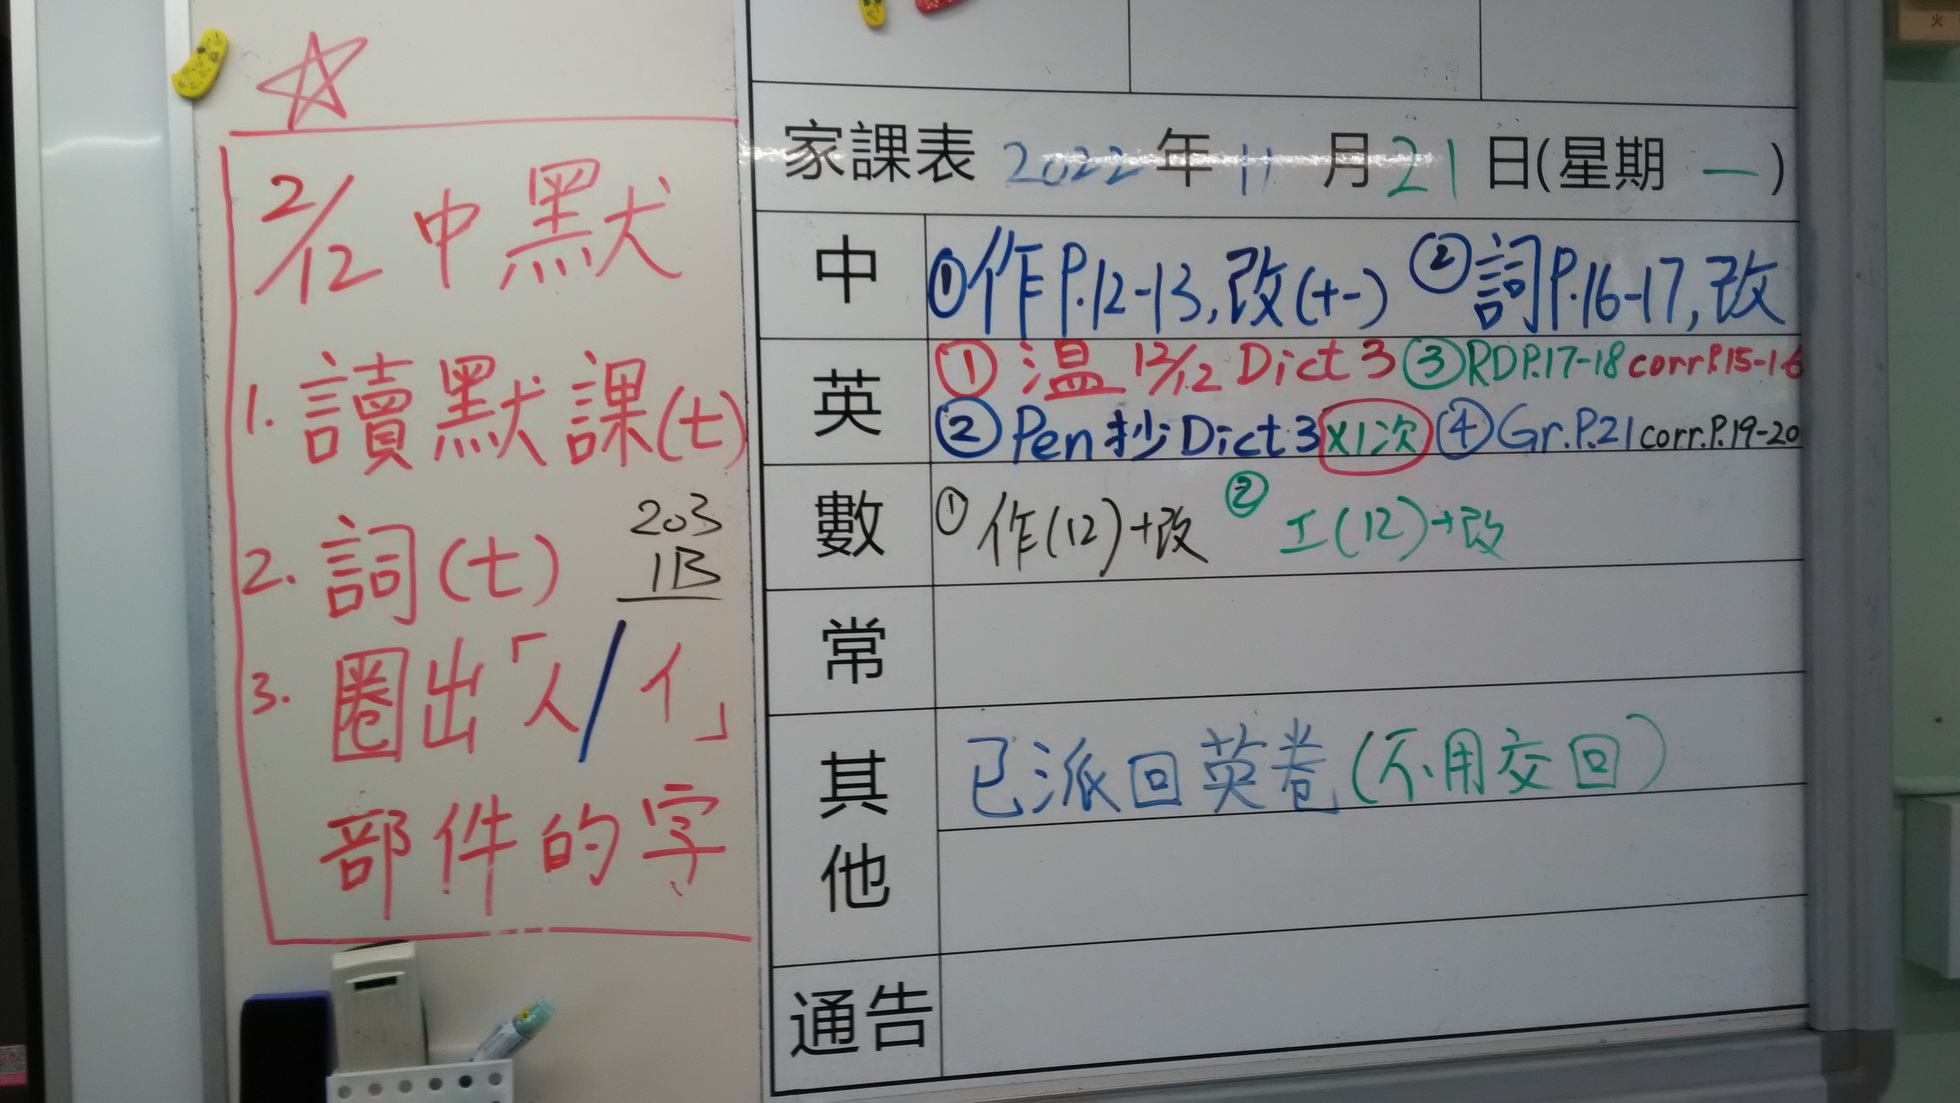 2/12 中默
1. 讀默課(七)
2. 詞(七)
203
1B
3. 圈出「人/亻」
部件的字
家課表 2022 年 11 月 21 日(星期 一)
中
①作P.12-13,改(+-) ②詞P.16-17,改
英
①温 12/12 Dict 3 ③RDP.17-18 corr.P.15-16
②Pen抄Dict 3 x1次 ④Gr.P.21 corr.P.19-20
數
①作(12)+改 ②工(12)+改
常
其他
已派回英卷(不用交回)
通告
火